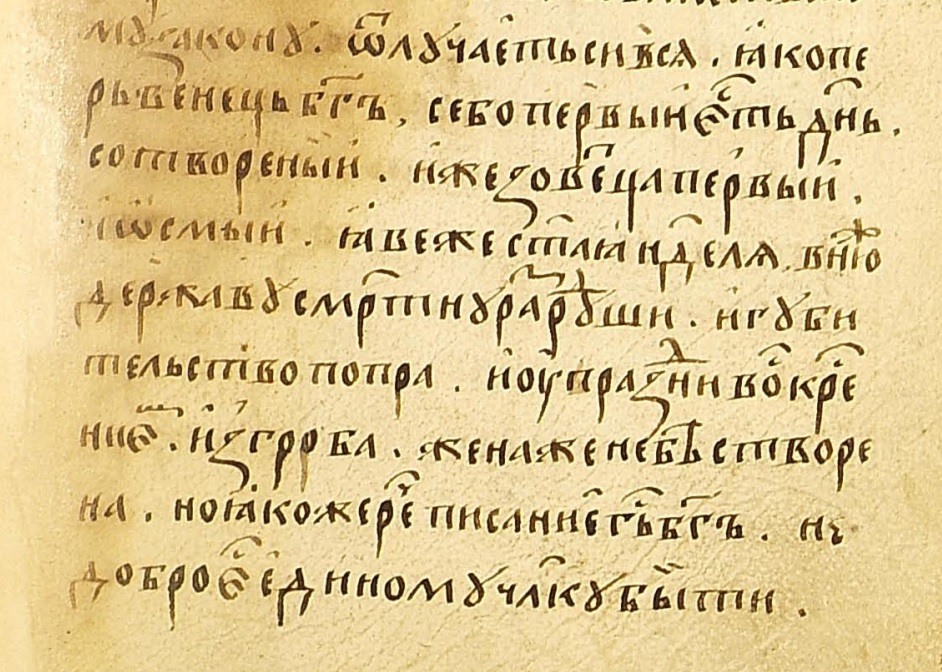 мꙋзаконꙋ. ѿлꙋчаетьсиѣся. ꙗкопе
рьвенець б҃гъ, себопервыйєⷭ҇тьдн҃ь.
сотвореный. ижезовеⷨ҇цапервый.
иѿсмый. ꙗвежест҃аꙗнⷣ҇еля. внюⷤ
державꙋсмр҃тнꙋраⷥ҇рꙋши. игꙋби
тельствопопра. ноупразⷣниво҇кр҃е
ниеⷨ҇. изгроба. женаженебѣстворе
на. ноꙗкожереⷱ҇писаниегь҃б҃гъ. не
доброеⷭ҇единомꙋчл҃кꙋбыти.